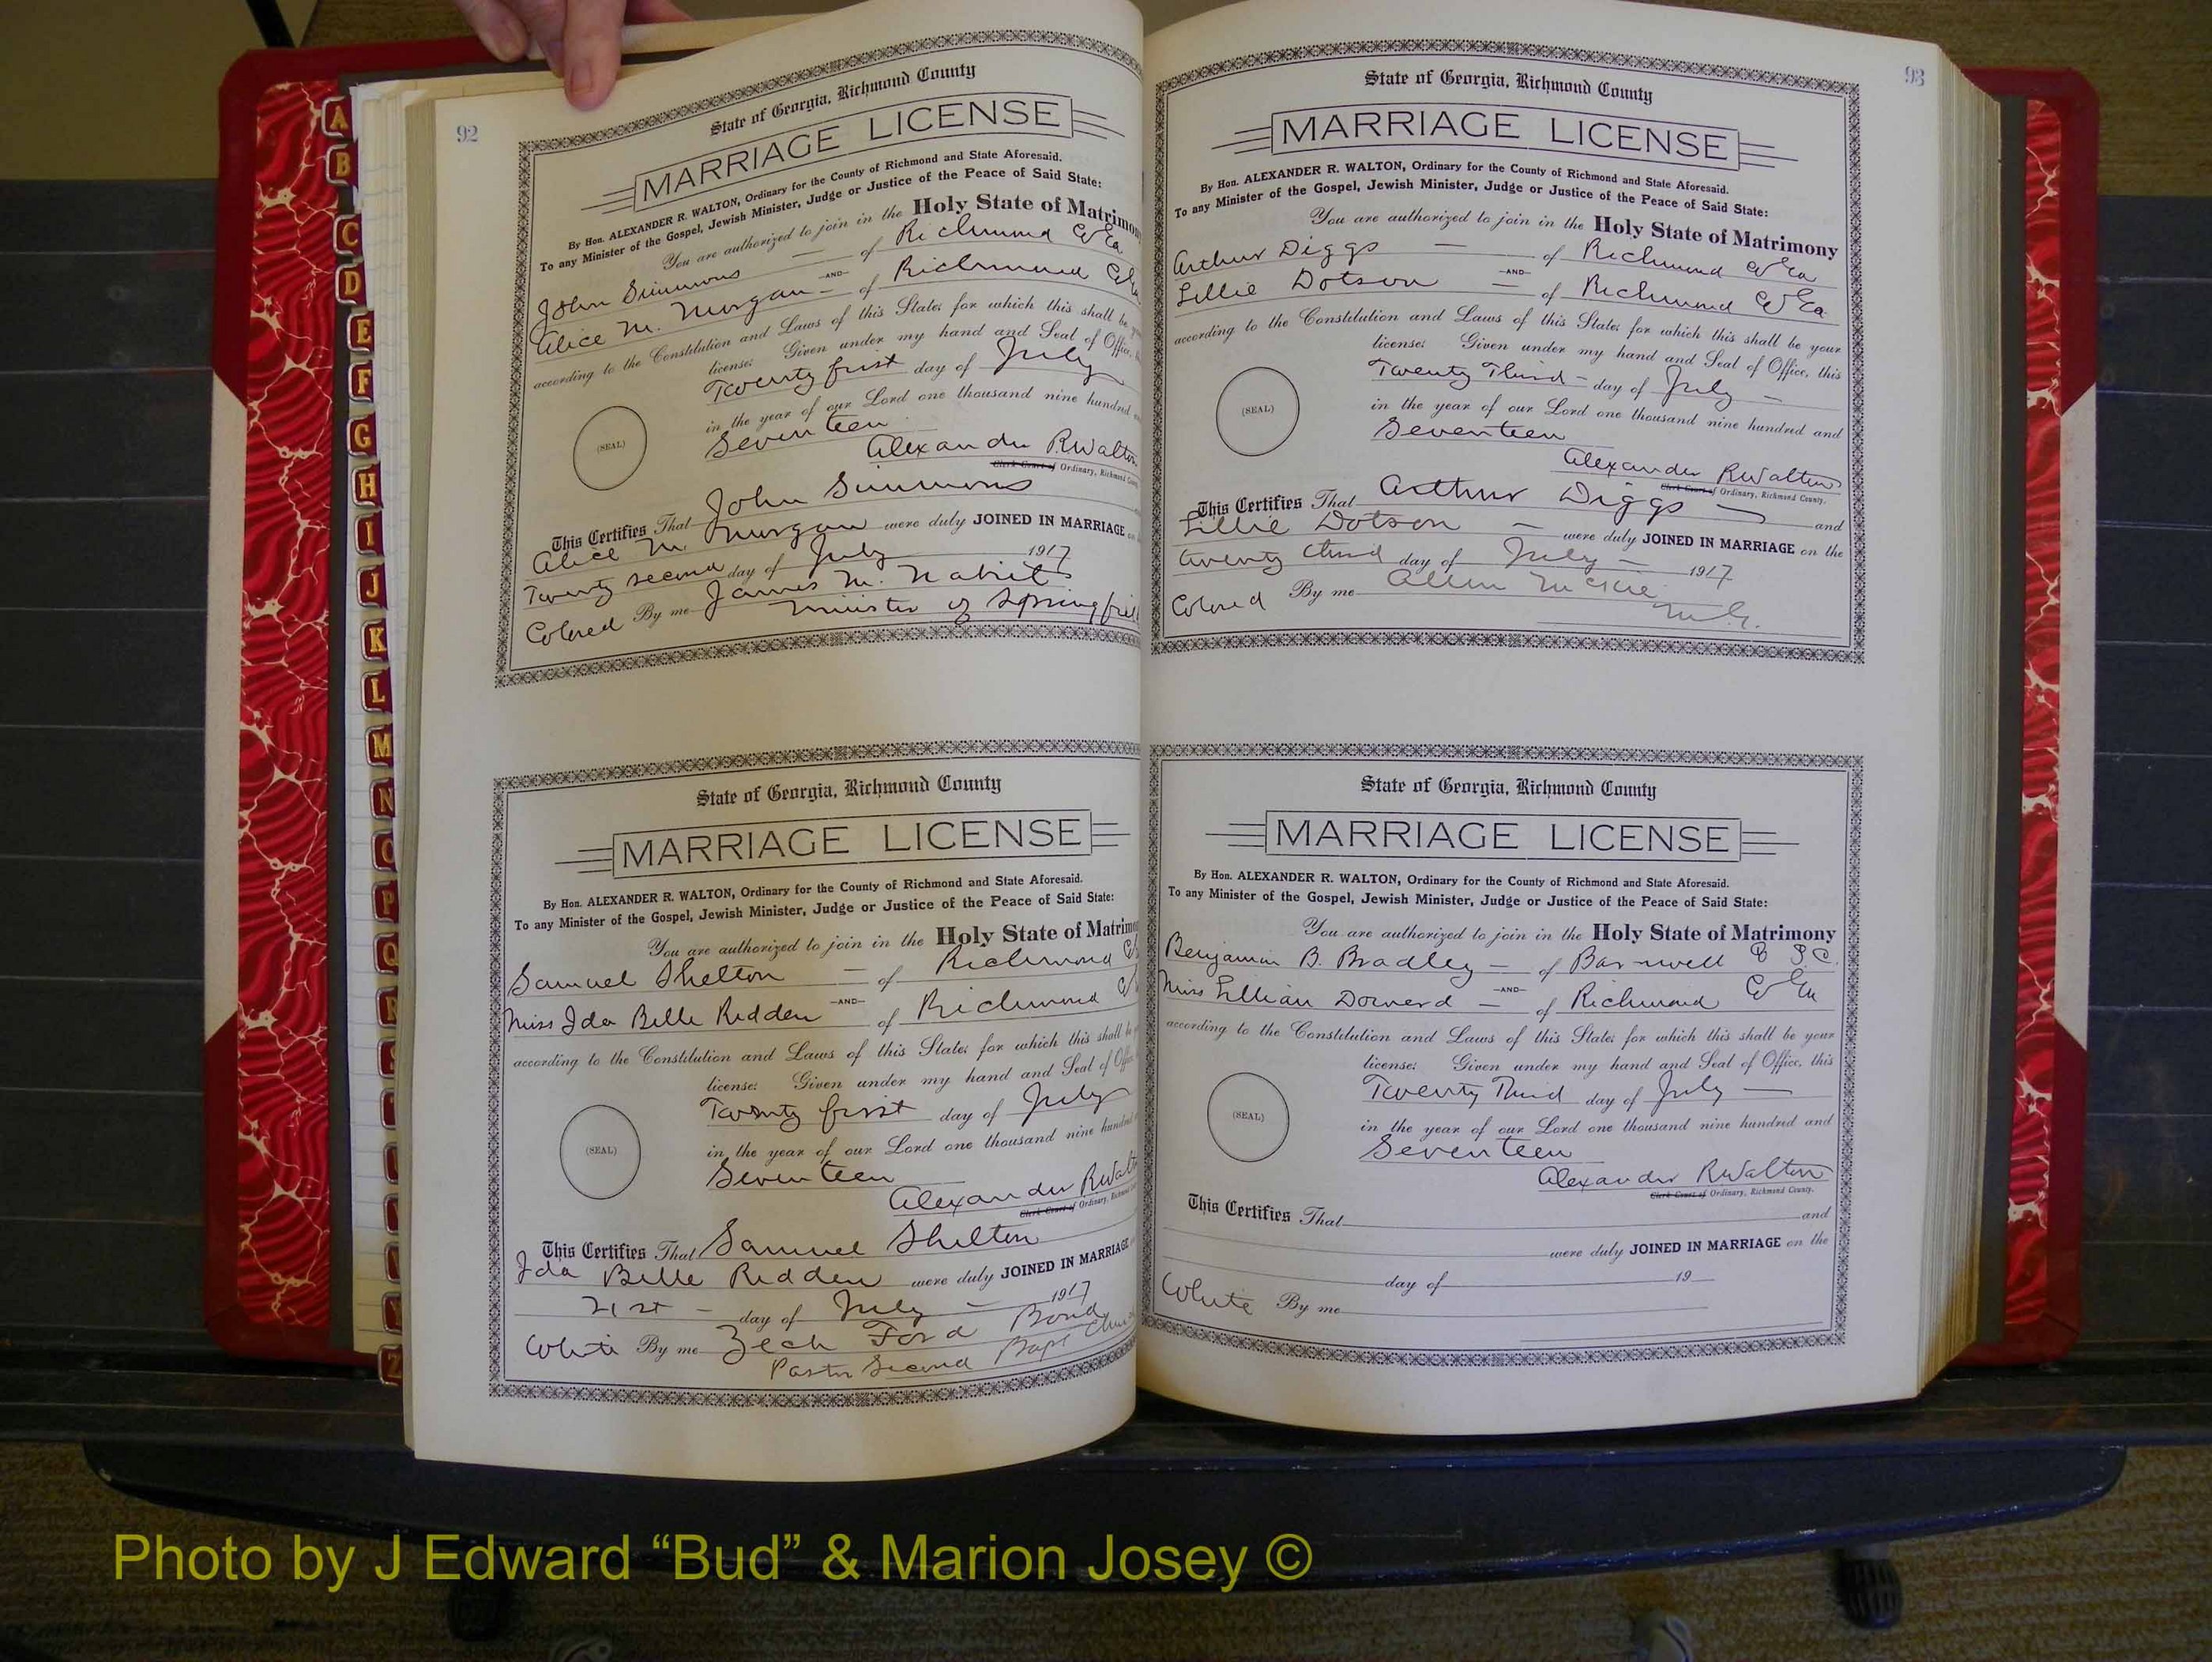 A
B
C
D
E
F
G
H
I
J
K
L
M
N
O
P
Q
R
S
Z
92
State of Georgia, Richmond County
MARRIAGE LICENSE
By Hon. ALEXANDER R. WALTON, Ordinary for the County of Richmond and State Aforesaid.
To any Minister of the Gospel, Jewish Minister, Judge or Justice of the Peace of Said State:
You are authorized to join in the Holy State of Matrimony
John Simmons — of Richmond Co Ga
—AND—
Alice M. Morgan — of Richmond Co Ga
according to the Constitution and Laws of this State; for which this shall be
license: Given under my hand and Seal of Office,
Twenty first day of July
in the year of our Lord one thousand nine hundred
(SEAL)
Seventeen
Alexander R Walton
Clerk Court of Ordinary, Richmond
This Certifies That John Simmons
Alice M. Morgan were duly JOINED IN MARRIAGE
Twenty second day of July 1917
Colored By me James M. Nabrit
Minister of Springfield
State of Georgia, Richmond County
MARRIAGE LICENSE
By Hon. ALEXANDER R. WALTON, Ordinary for the County of Richmond and State Aforesaid.
To any Minister of the Gospel, Jewish Minister, Judge or Justice of the Peace of Said State:
You are authorized to join in the Holy State of Matrimo
Samuel Shelton — of Richmond Co
—AND—
Miss Ida Belle Redden of Richmond Co
according to the Constitution and Laws of this State; for which this shall be
license: Given under my hand and Seal of
Twenty first day of July
in the year of our Lord one thousand nine hundred
(SEAL)
Seventeen
Alexander R Walt
Clerk Court of Ordinary,
This Certifies That Samuel Shelton
Ida Belle Redden were duly JOINED IN MARRIAGE
21st — day of July — 1917
White By me Zech Ford Bond
Pastor Second Bapt Church
93
State of Georgia, Richmond County
MARRIAGE LICENSE
By Hon. ALEXANDER R. WALTON, Ordinary for the County of Richmond and State Aforesaid.
To any Minister of the Gospel, Jewish Minister, Judge or Justice of the Peace of Said State:
You are authorized to join in the Holy State of Matrimony
Arthur Diggs — of Richmond Co Ga
—AND—
Lillie Dotson — of Richmond Co Ga
according to the Constitution and Laws of this State; for which this shall be your
license: Given under my hand and Seal of Office, this
Twenty Third — day of July —
in the year of our Lord one thousand nine hundred and
(SEAL)
Seventeen
Alexander R Walton
Clerk Court of Ordinary, Richmond County.
This Certifies That Arthur Diggs — and
Lillie Dotson — were duly JOINED IN MARRIAGE on the
twenty third day of July — 1917
Colored By me Allen McKie
M.G.
State of Georgia, Richmond County
MARRIAGE LICENSE
By Hon. ALEXANDER R. WALTON, Ordinary for the County of Richmond and State Aforesaid.
To any Minister of the Gospel, Jewish Minister, Judge or Justice of the Peace of Said State:
You are authorized to join in the Holy State of Matrimony
Benjamin B. Bradley — of Barnwell Co S.C.
—AND—
Miss Lillian Doward — of Richmond Co Ga
according to the Constitution and Laws of this State; for which this shall be your
license: Given under my hand and Seal of Office, this
Twenty Third day of July —
in the year of our Lord one thousand nine hundred and
(SEAL)
Seventeen
Alexander R Walton
Clerk Court of Ordinary, Richmond County.
This Certifies That and
were duly JOINED IN MARRIAGE on the
day of 19
White By me
Photo by J Edward “Bud” & Marion Josey ©